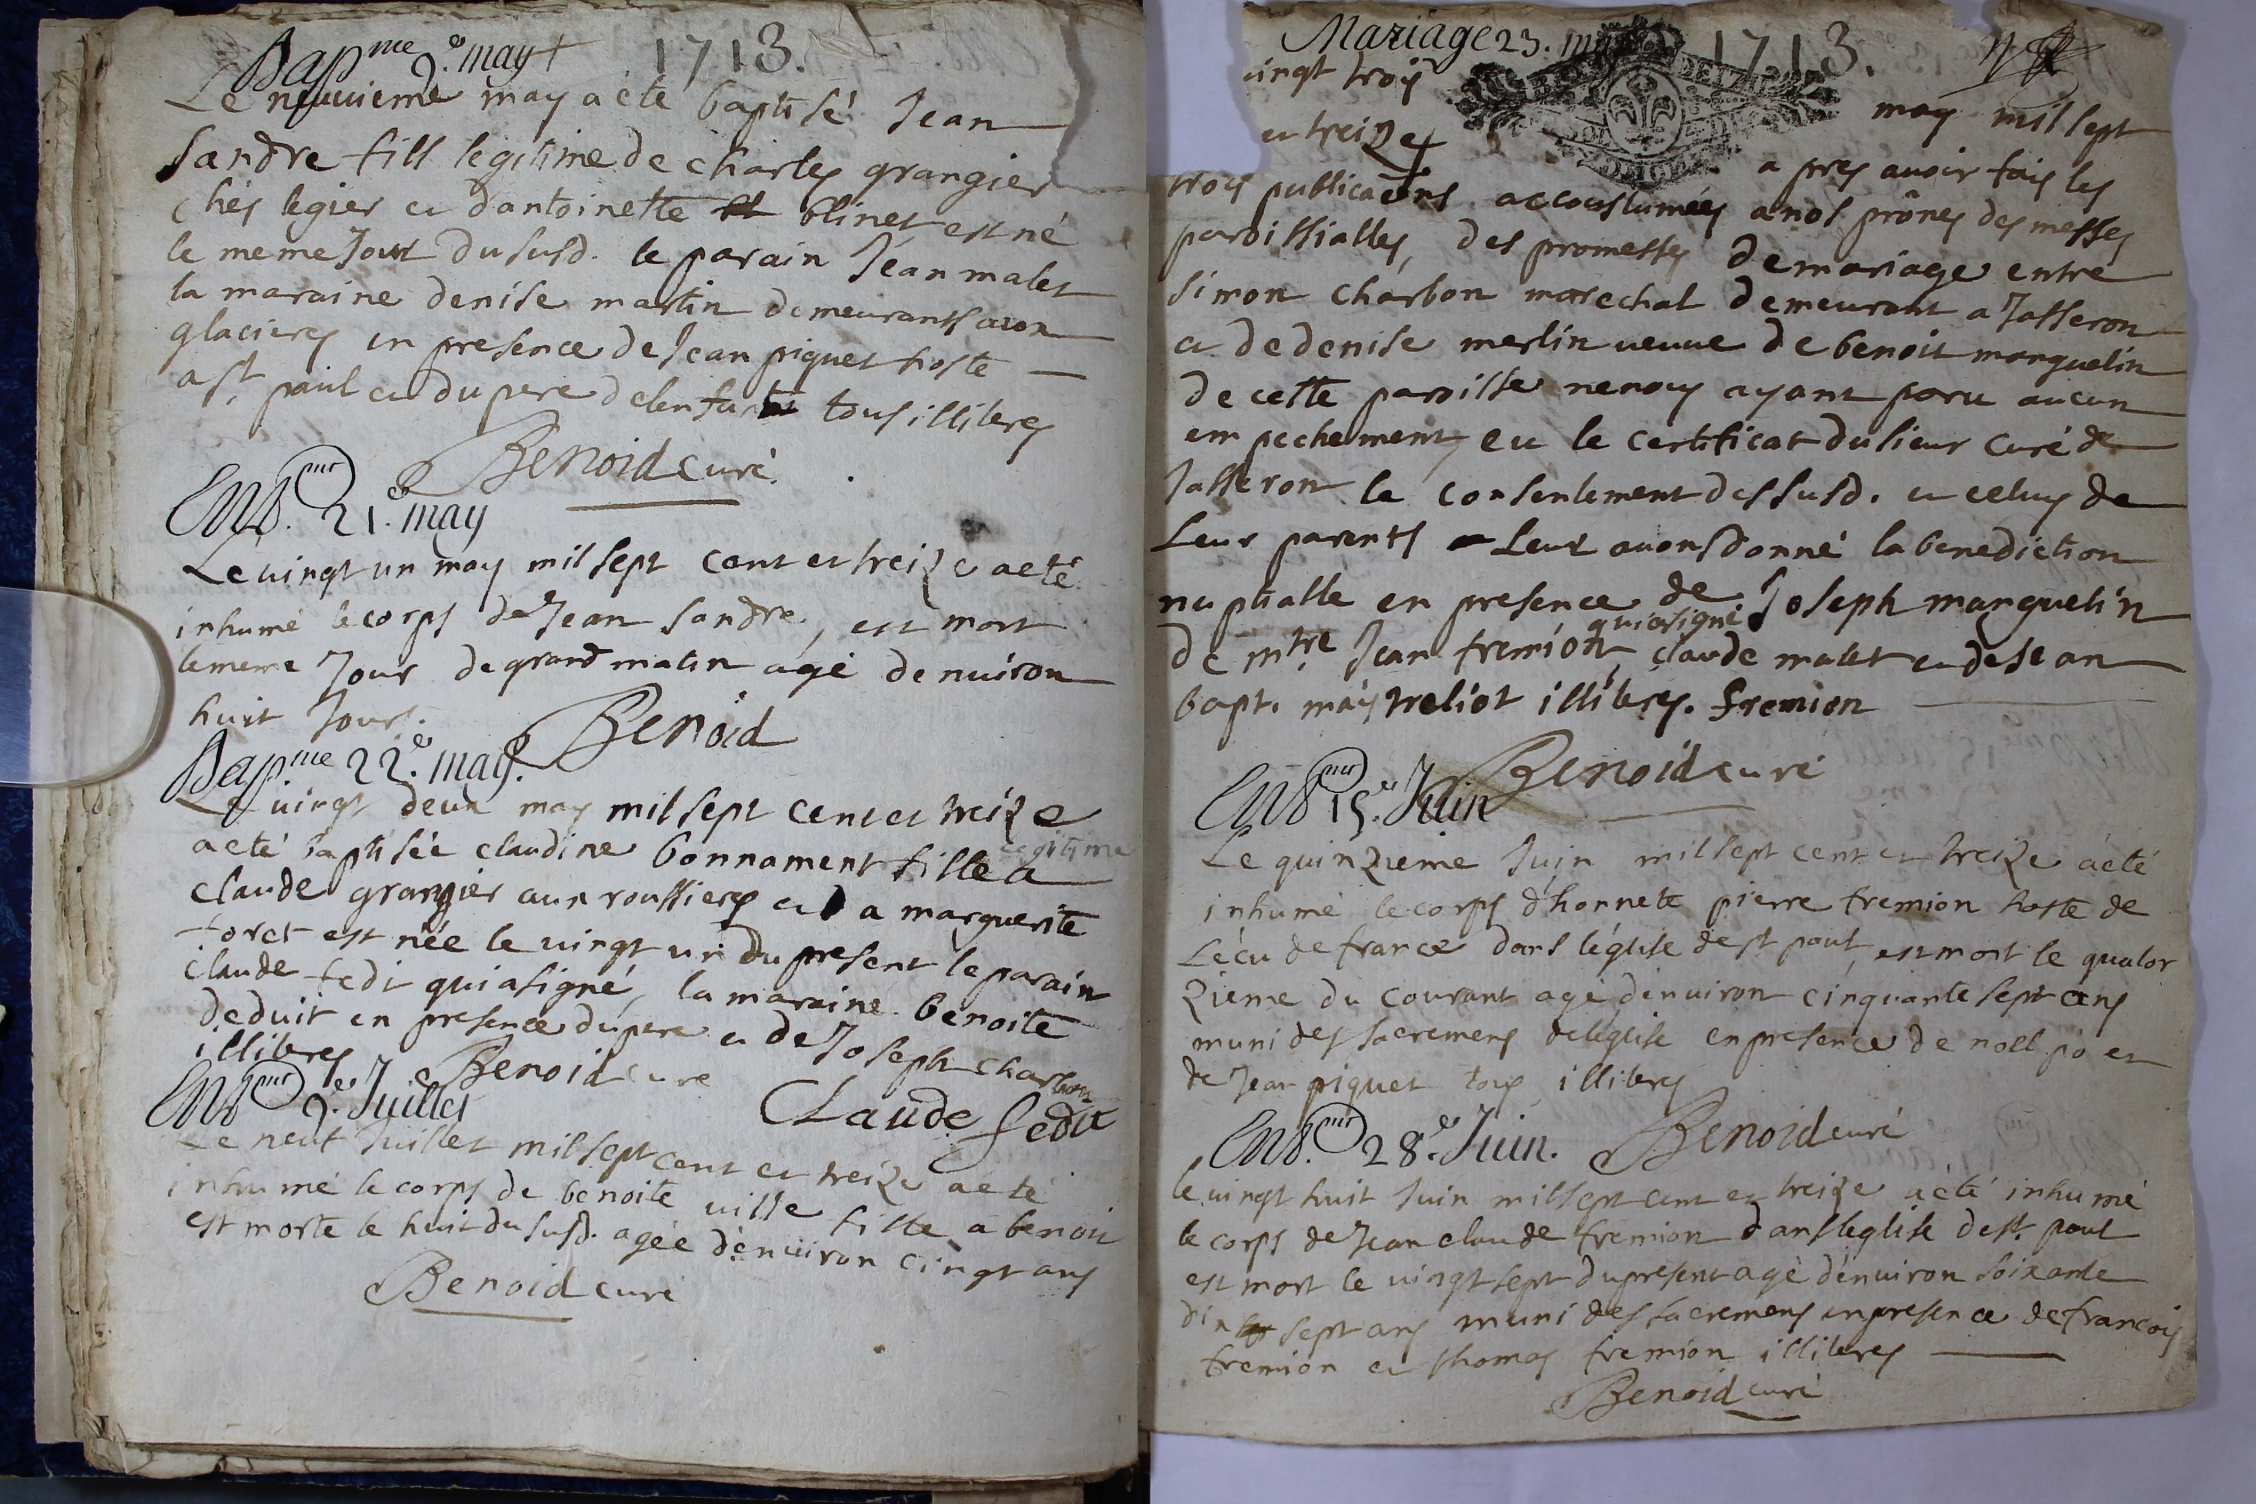 Bap.me 9.e may + 1713.
Le neuvieme may a eté baptisé Jean
Sandre fill legitime de charles grangier
chés legier et dantoinette blinet est né
le meme Jour du susd. le parain Jean malet
la maraine denise martin demeurants aron
glacieres en presence de Jean piquet hoste
a st. paul et du pere delenfant tous illiteres
Benoid curé.
Ent.mt 21.e may
Le vingt un may mil sept cent et treize a eté
inhumé le corps de Jean Sandre, est mort
le meme Jour de grand matin agé denuiron
huit Jours.
Benoid
Bap.me 22.e may.
Le vingt deux may mil sept cent et treize
a eté baptisée claudine bonnament fille legitime a
claude grangier aux roussieres et a marguerite
foret est née le vingt un du present le parain
claude fedit qui a signé, la maraine benoite
deduit en presence du pere et de Joseph charbon
illiteres
Benoid curé
Claude fedit
Ent.mt 9.e Juillet
Le neuf Juillet mil sept cent et treize a eté
inhumé le corps de benoite uille fille a benoit
est morte le huit du susd. agée d'enuiron cinqt ans
Benoid curé
Mariage 23. may 1713.
vingt troy may mil sept
et treize apres avoir fais les
troys publicaons accoustumées a nos prônes des messes
paroissialles, des promesses de mariage entre
Simon charbon marechal demeurant a Jasseron
et de denise merlin ueuue de benoit marguelin
de cette paroisse nenous ayant paru aucun
empechement, eu le certificat du sieur curé de
Jasseron le consentement dessusd. et celuy de
Leur parents Leur auons donné la benediction
nuptialle en presence de Joseph marguelin
de mtre Jean fremion qui a signé, claude malet et de Jean
bapt. maistreliot illiteres. fremion
Benoid curé
Ent.mt 15.e Juin
Le quinzieme Juin mil sept cent et treize a eté
inhumé le corps d'honnete pierre fremion hoste de
Lécu de france dans léglise de st paul, est mort le quator
zieme du courant agé denuiron cinquante sept ans
muni des sacremens deléglise en presence de noel po et
de Jean piquet tous illiteres
Benoid curé
Ent.mt 28.e Juin.
le vingt huit Juin mil sept cent et treize a eté inhumé
le corps de Jean claude fremion dans leglise de st. paul
est mort le vingt sept du present agé denuiron soixante
dix sept ans muni des sacremens en presence de francois
fremion et thomas fremion illiteres
Benoid curé